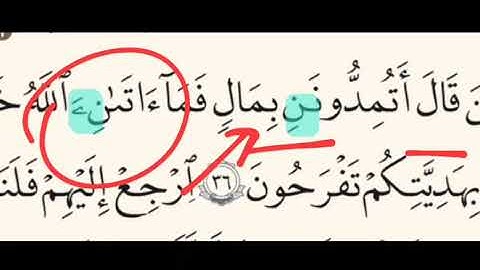 قَالَ أَتُمِدُّونَنِ بِمَالٍ فَمَآ ءَاتَىٰنِۦَ ٱللَّهُ
بِهَدِيَّتِكُمْ تَفْرَحُونَ ٣٦ ٱرْجِعْ إِلَيْهِمْ